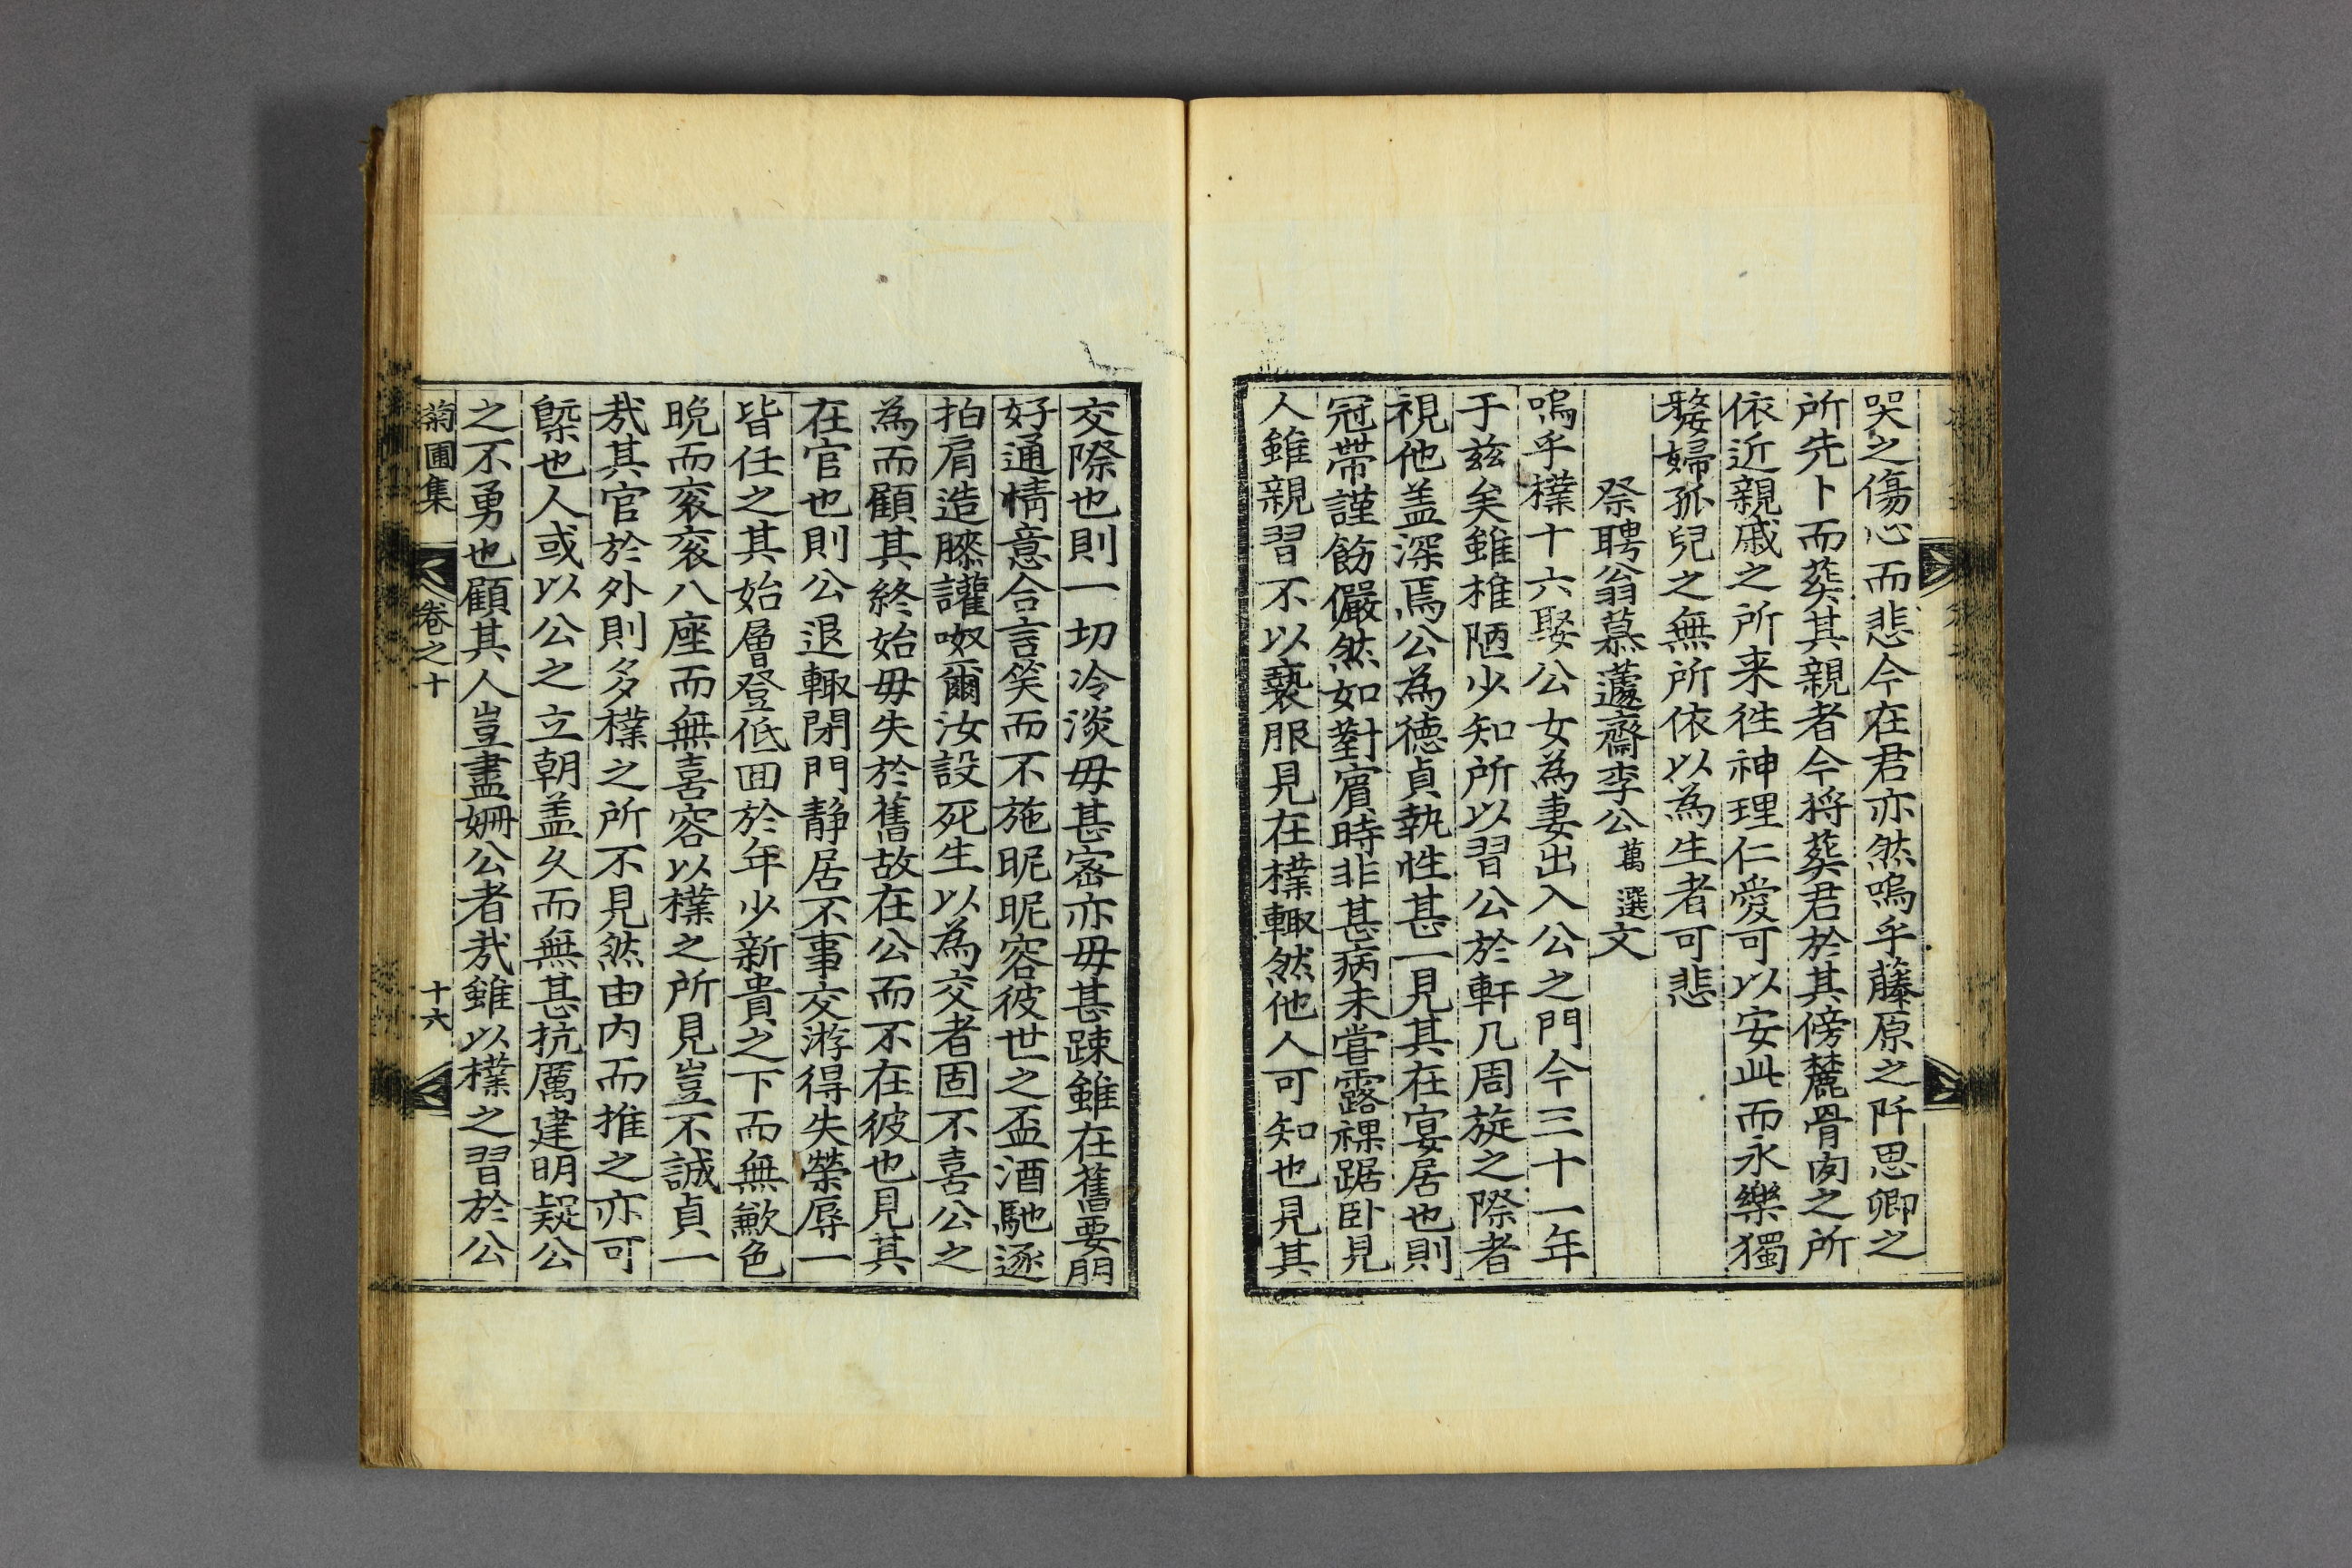 哭之傷心而悲今在君亦然嗚乎藤原之阡思卿之
所先卜而葬其親者今將葬君於其傍麓骨肉之所
依近親戚之所来徃神理仁愛可以安此而永樂獨
嫠婦孤兒之無所依以為生者可悲
祭聘翁慕蘧齋李公萬選文
嗚乎樸十六娶公女為妻出入公之門今三十一年
于兹矣雖椎陋少知所以習公於軒几周旋之際者
視他盖深焉公為德貞執性甚一見其在宴居也則
冠帶謹飭儼然如對賓時非甚病未嘗露裸踞卧見
人雖親習不以褻服見在樸輙然他人可知也見其
交際也則一切冷淡毋甚密亦毋甚踈雖在舊要朋
好通情意合言笑而不施昵昵容彼世之盃酒馳逐
拍肩造膝讙呶爾汝設死生以為交者固不喜公之
為而顧其終始毋失於舊故在公而不在彼也見其
在官也則公退輙閉門静居不事交游得失榮辱一
皆任之其始層登低回於年少新貴之下而無歉色
晩而衮衮八座而無喜容以樸之所見豈不誠貞一
㢤其官於外則多樸之所不見然由内而推之亦可
槩也人或以公之立朝盖久而無甚抗厲建明疑公
之不勇也顧其人豈盡姍公者㢤雖以樸之習於公
菊圃集 卷之十 十六